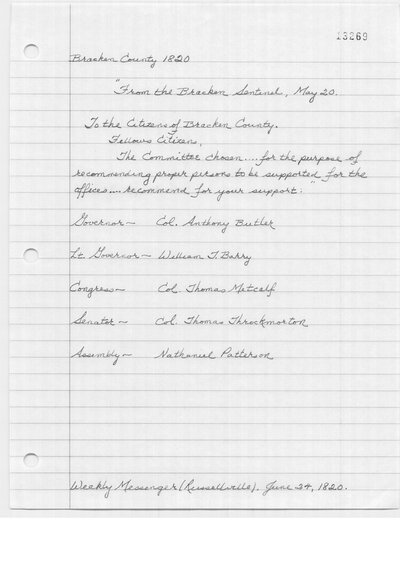 13269
Bracken County 1820
"From the Bracken Sentinel, May 20.
To the Citizens of Bracken County.
Fellow Citizens,
The Committee chosen....for the purpose of
recommending proper persons to be supported for the
offices....recommend for your support:"
Governor~ Col. Anthony Butler
Lt. Governor~ William T. Barry
Congress~ Col. Thomas Metcalf
Senator~ Col. Thomas Throckmorton
Assembly~ Nathaniel Patterson
Weekly Messenger (Russellville). June 24, 1820.